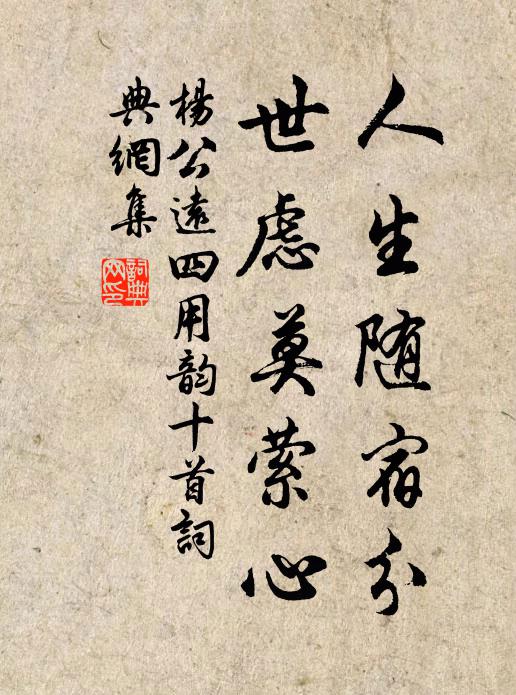 人生随宿分
世慮莫縈心
楊公遠四用韵十首詞
典網集
詞典网印